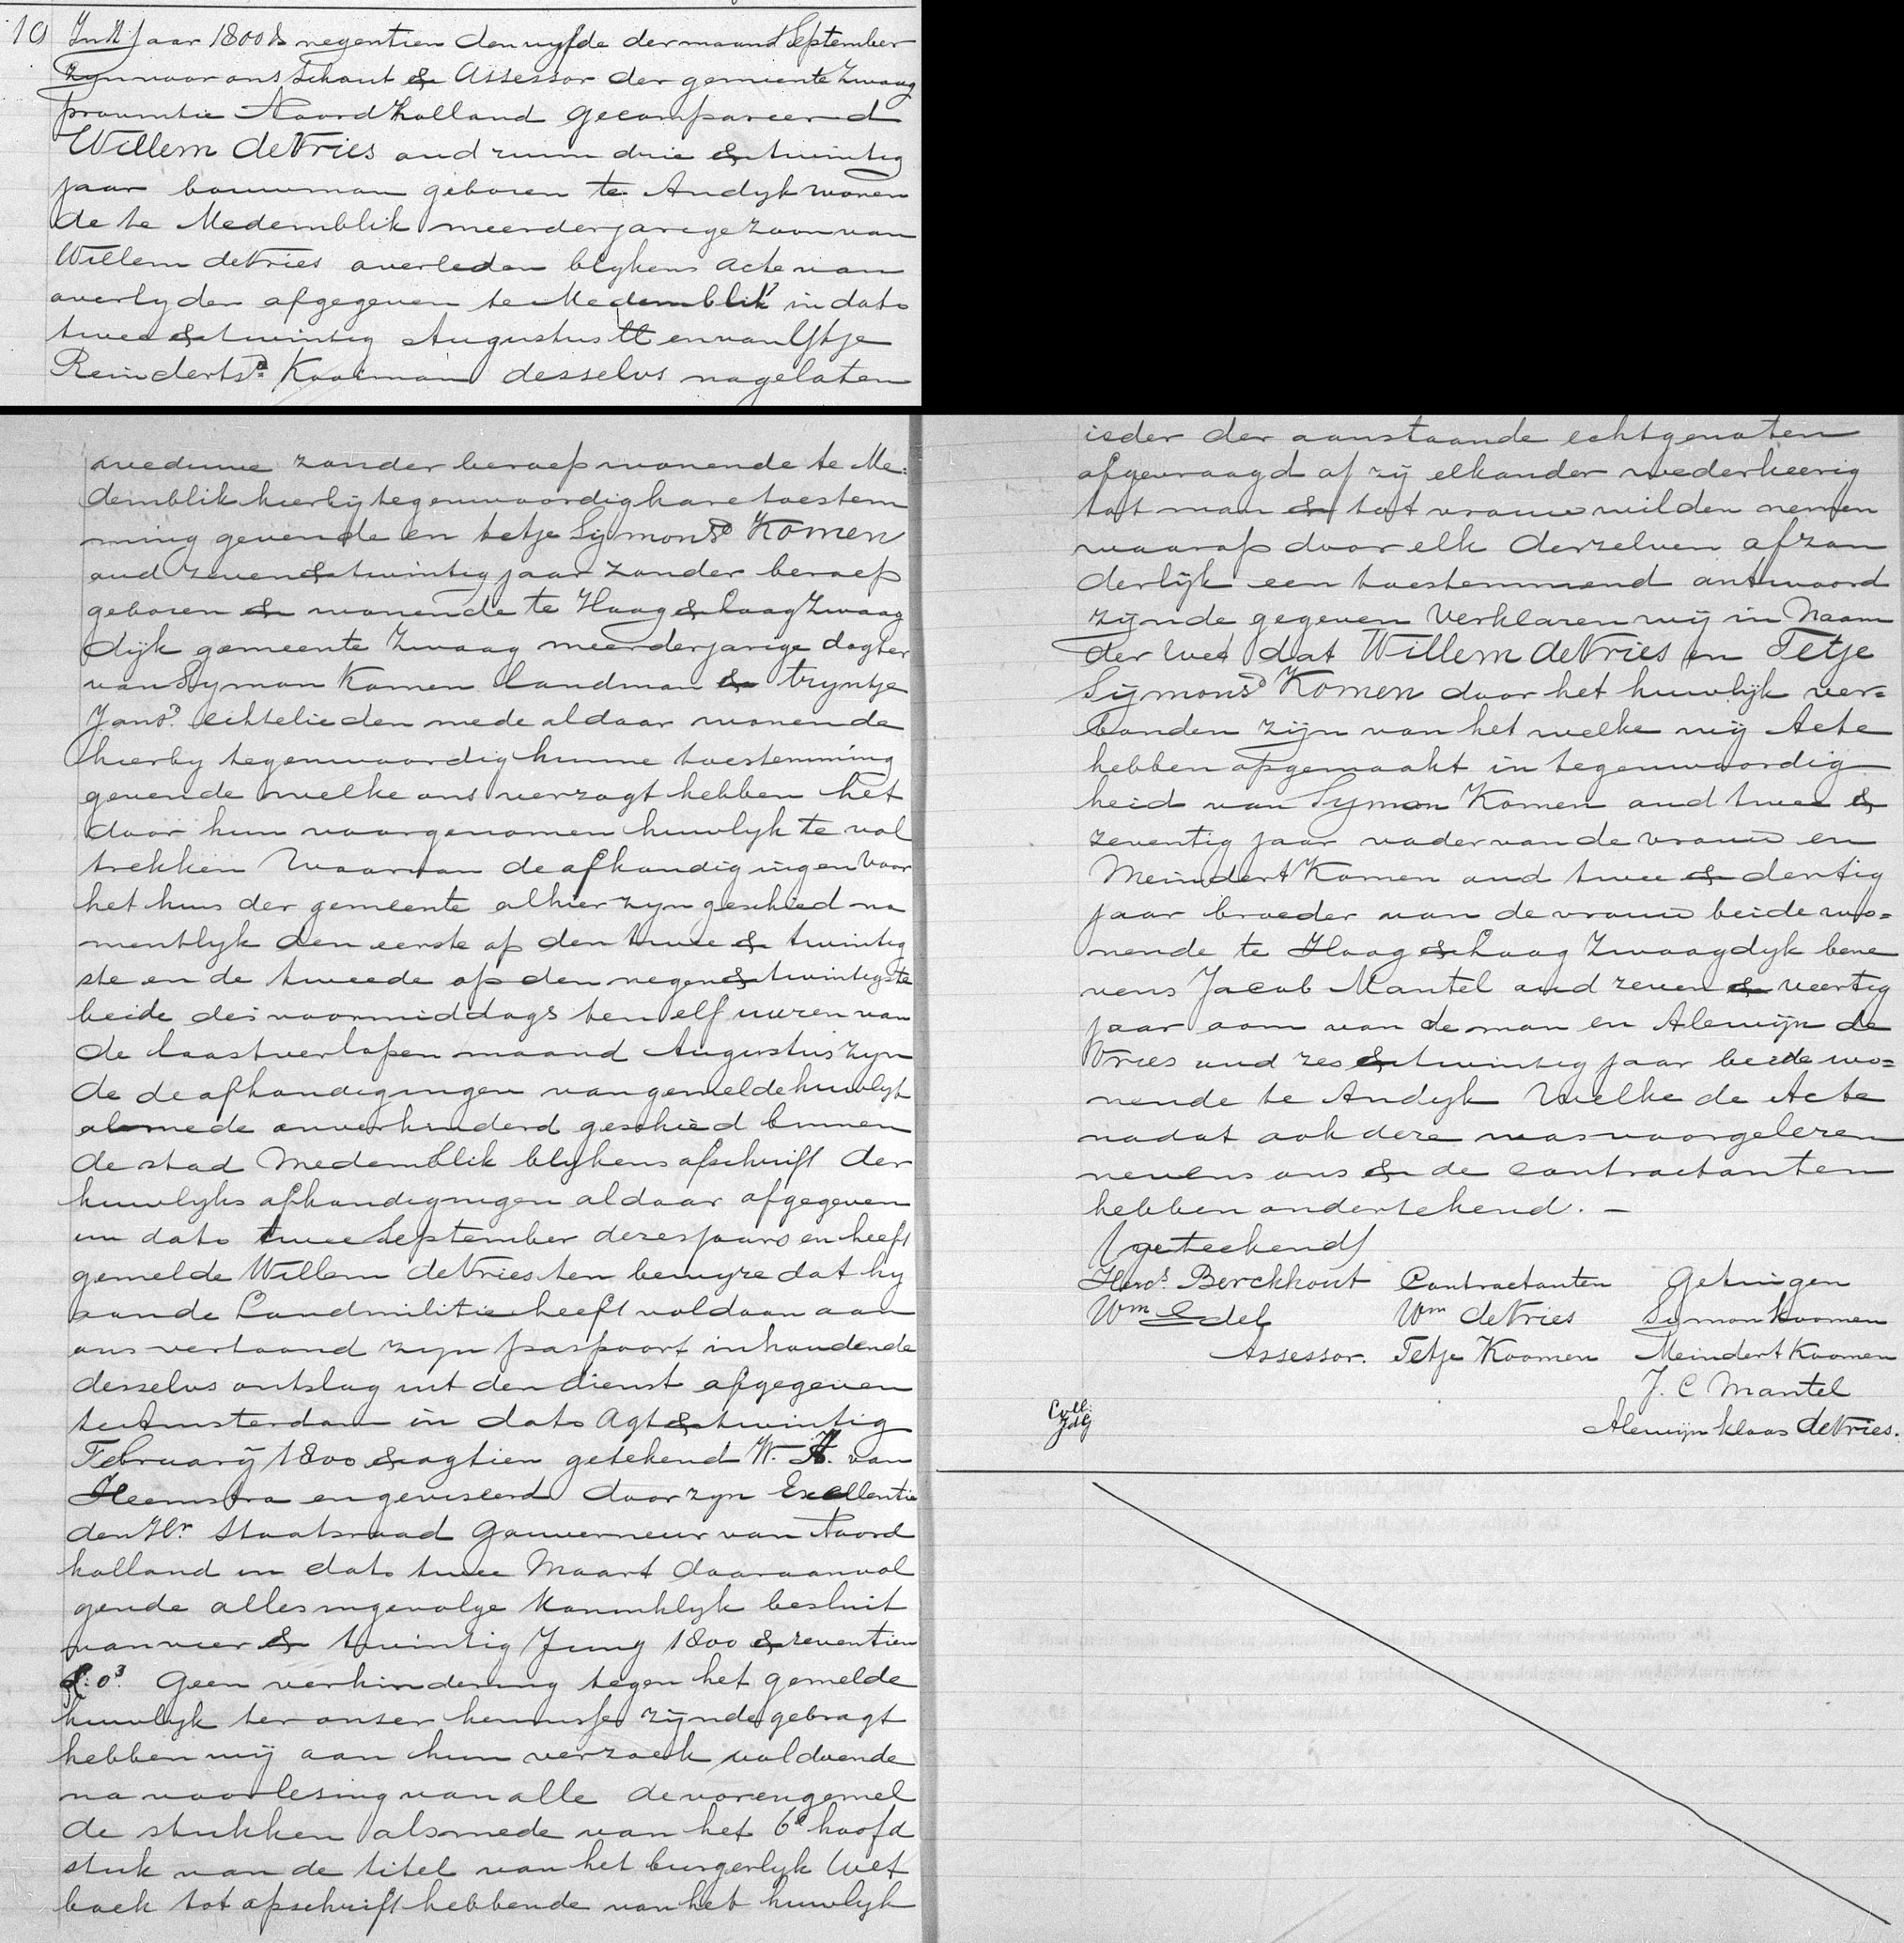 10 In 't jaar 1800 & negentien den vyfde der maand September
zyn voor ons Schout & Assessor der gemeente Zwaag
provintie Noordholland gecompareerd
Willem de Vries oud ruim drie & twintig
jaar bouwman geboren te Andyk wonen
de te Medemblik meerderjarige zoon van
Willem de Vries overleden blykens acte van
overlyden afgegeven te Medemblik in dato
twee & twintig Augustus ll en van Ytje
Reinderts Kooiman desselvs nagelaten
weduwe zonder beroep wonende te Me:
demblik hierbij tegenwoordig hare toestem
ming gevende en tetje Sijmonsd Komen
oud zeven & twintig jaar zonder beroep
geboren & wonende te Hoog & laag Zwaag
dijk gemeente Zwaag meerderjarige dogter
van Symon Komen landman & tryntje
Jansd echtelieden mede aldaar wonende
hierby tegenwoordig hunne toestemming
gevende welke ons verzogt hebben het
door hun voorgenomen huwlyk te vol
trekken waarvan de afkondigingen voor
het huis der gemeente alhier zyn geschied na
mentlyk den eerste op den twee & twintig
ste en de tweede op den negen & twintigste
beide des voormiddags ten elf uuren van
de laastverlopen maand Augustus zyn
de de afkondigingen van gemelde huwlyk
alsmede onverhinderd geschied binnen
de stad Medemblik blykens afschrift der
huwlyks afkondigingen aldaar afgegeven
in dato twee September dezes jaars en heeft
gemelde Willem de Vries ten bewyze dat hy
aan de Landmilitie heeft voldaan aan
ons vertoond zyn paspoort inhoudende
desselvs ontslag uit den dienst afgegeven
te Amsterdam in dato Agt & twintig
February 1800 & agtien getekend W. H. van
Heemstra en geviseerd door zyn Excellentie
den Hr Staatsraad Gouverneur van Noord
holland in dato twee Maart daaraanvol
gende alles ingevolge Koninklyk besluit
van vier & twintig Juny 1800 & zeventien
Geen verhindering tegen het gemelde
huwlyk ter onser kennisse zijnde gebragt
hebben wij aan hun verzoek voldoende
na voorlesing van alle de vorengemel
de stukken alsmede van het 6e hoofd
stuk van de titel van het burgerlyk Wet
boek tot opschrift hebbende van het huwlyk
ieder der aanstaande echtgenoten
afgevraagd of zij elkander wederkeerig
tot man & tot vrouw wilden nemen
waarop door elk derzelven afzon
derlijk een toestemmend antwoord
zijnde gegeven Verklaren wij in Naam
der Wet dat Willem de Vries en Tetje
Sijmonsd Komen door het huwlijk ver=
bonden zijn van het welke wij Acte
hebben opgemaakt in tegenwoordig
heid van Symon Komen oud twee &
zeventig jaar vader van de vrouw en
Meindert Komen oud twee & dertig
jaar broeder van de vrouw beide wo=
nende te Hoog & laag Zwaagdyk bene
vens Jacob Mantel oud zeven & veertig
jaar oom van de man en Alewijn de
Vries oud zes & twintig jaar beide wo=
nende te Andyk Welke de Acte
nadat ook deze was voorgelezen
nevens ons & de contractanten
hebben ondertekend. –
(geteekend)
Hend.s Berckhout Contractanten Getuigen
Wm Edel Wm de Vries Symon Koomen
Assessor. Tetje Koomen Meindert Koomen
J. C Mantel
Coll:
JdG Alewijn Klaas de Vries.